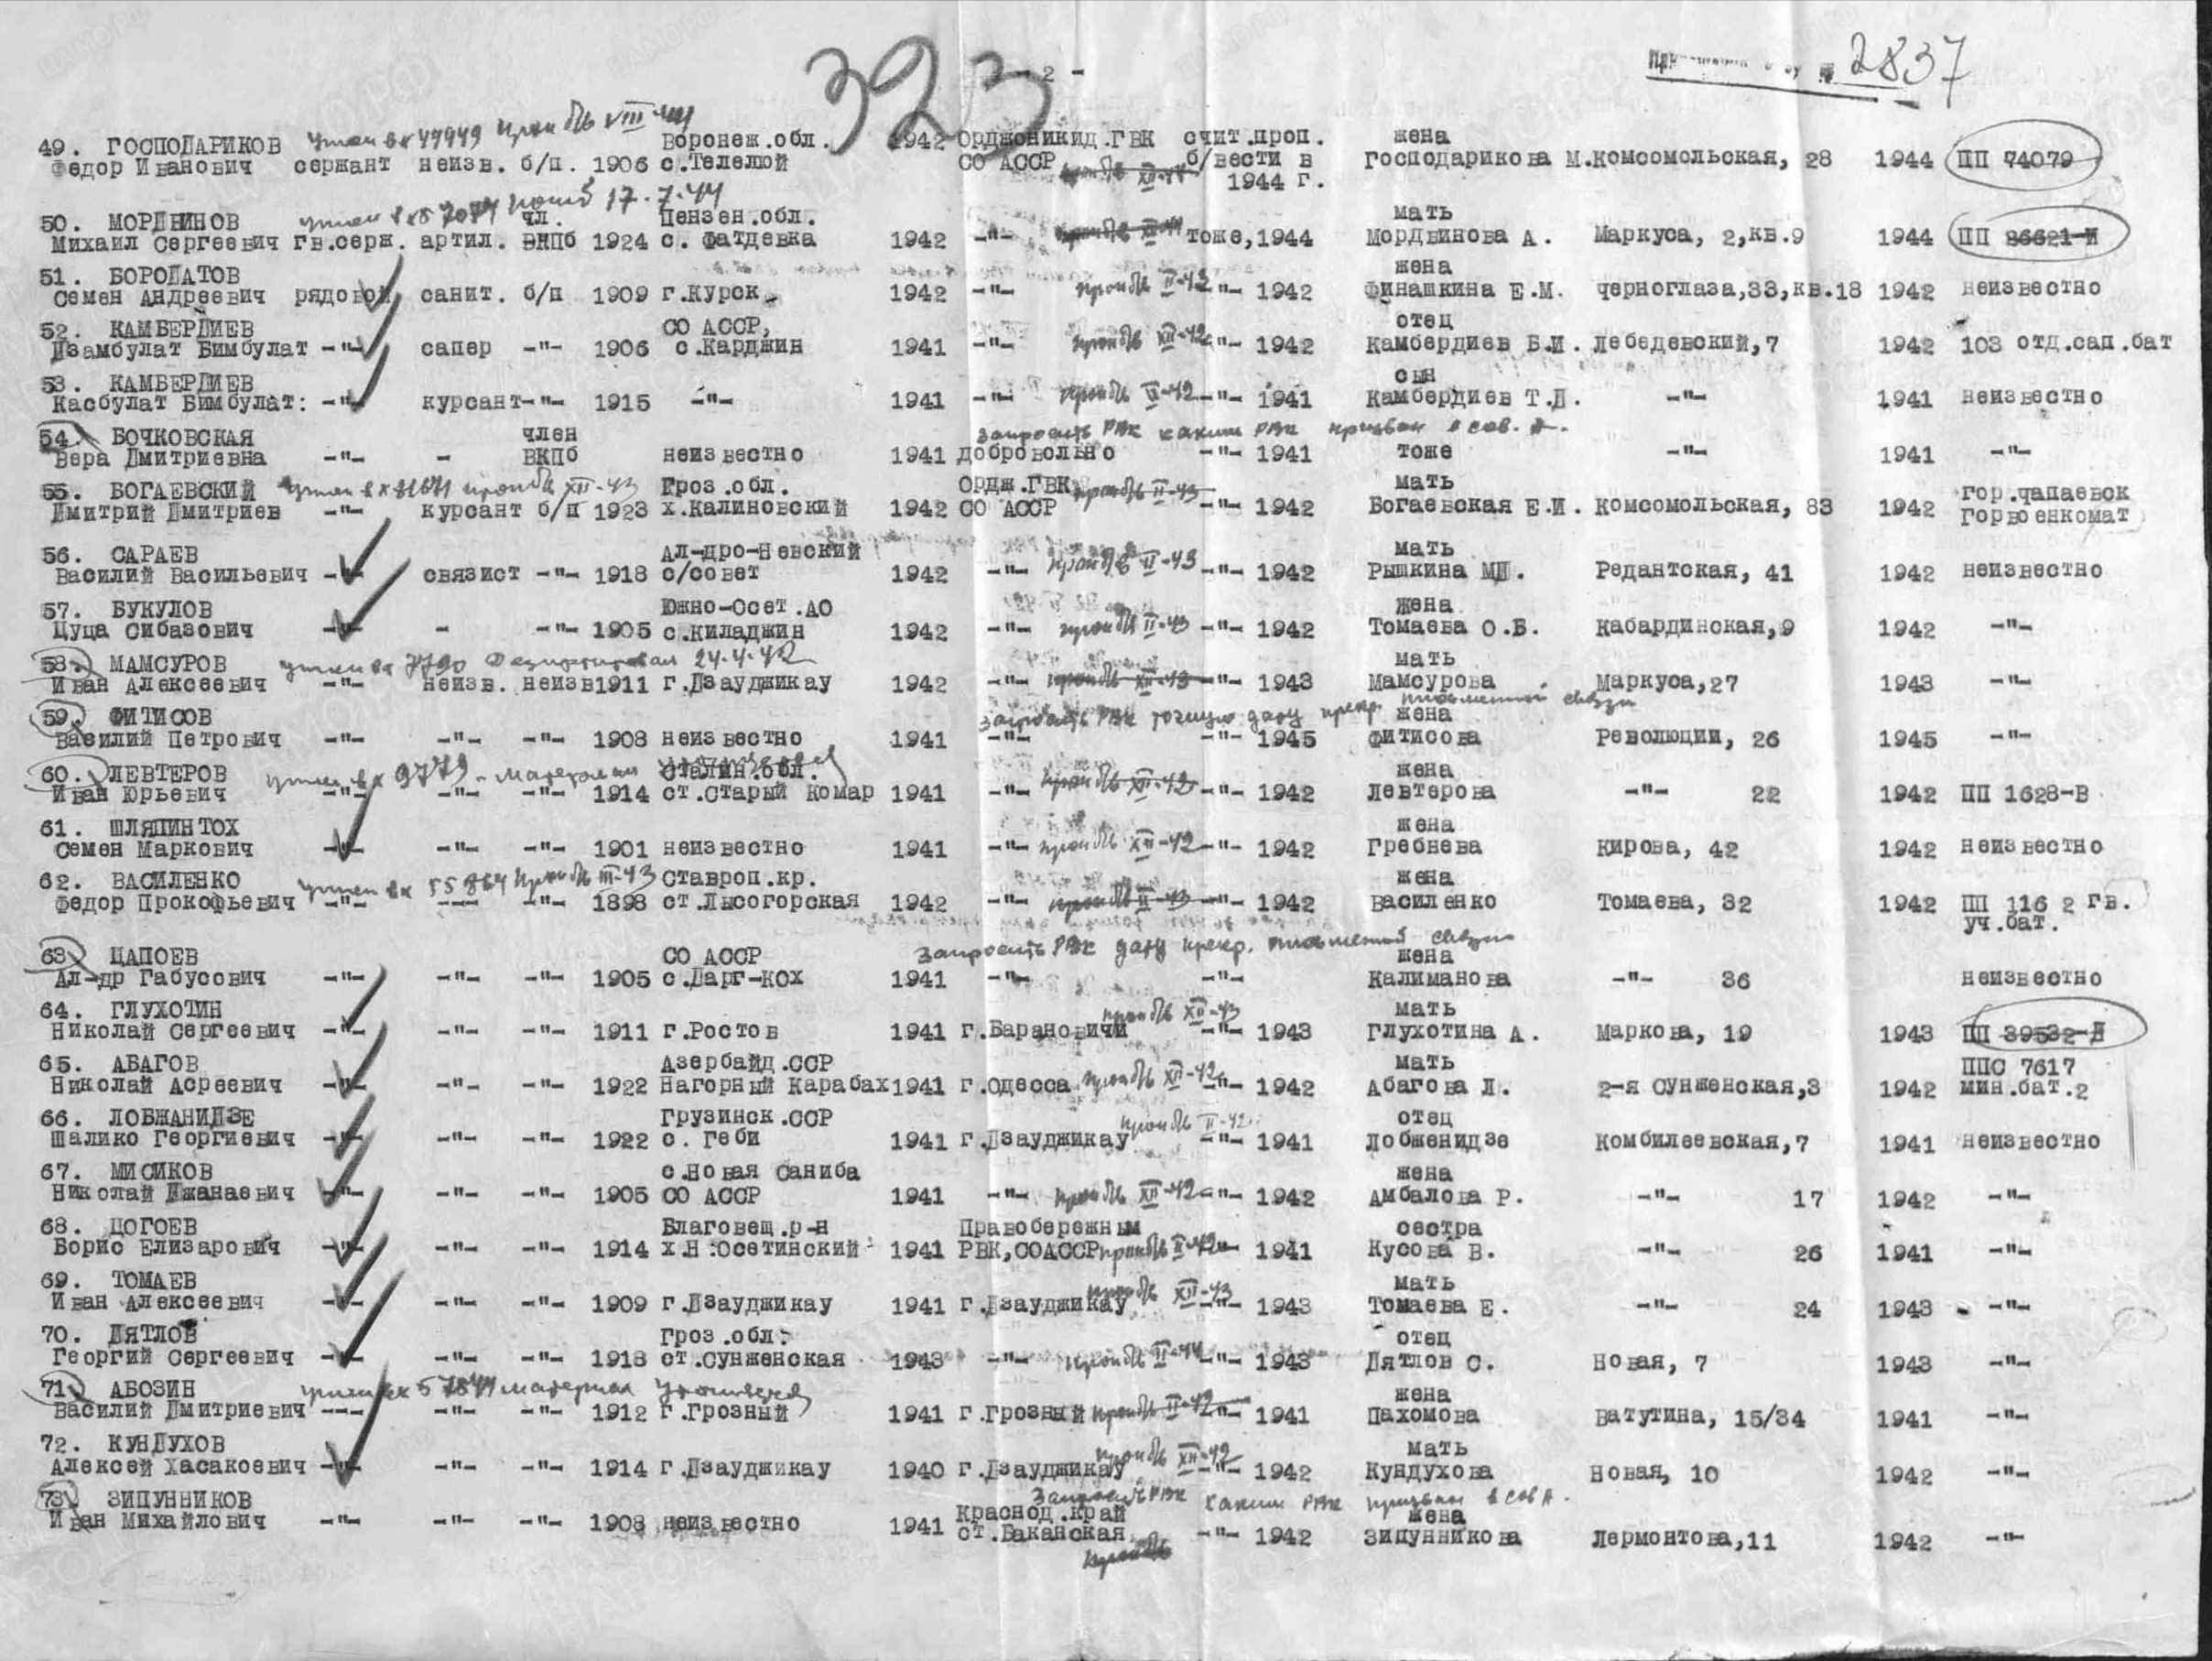 323
- 2 -
2837
49. ГОСПОДАРИКОВ Воронеж.обл. 1942 Орджоникид.ГВК счит.проп. жена
Федор Иванович сержант неизв. б/п. 1906 с.Телелюй СО АССР б/вести в Господарикова М.Комсомольская, 28 1944 ПП 74079
1944 г.
50. МОРДВИНОВ чл. Пензен.обл. мать
Михаил Сергеевич гв.серж. артил. ВКПб 1924 с. Фатдевка 1942 -"- тоже,1944 Мордвинова А. Маркуса, 2,кв.9 1944 ПП 86621-И
51. БОРОДАТОВ жена
Семен Андреевич рядовой санит. б/п 1909 г.Курск 1942 -"- -"- 1942 Финашкина Е.М. Черноглаза,33,кв.18 1942 неизвестно
52. КАМБЕРДИЕВ СО АССР, отец
Дзамбулат Бимбулат -"- сапер -"- 1906 с.Карджин 1941 -"- -"- 1942 Камбердиев Б.И. Лебедевский,7 1942 103 отд.сап.бат
53. КАМБЕРДИЕВ сын
Касбулат Бимбулат: -"- курсант-"- 1915 -"- 1941 -"- -"- 1941 Камбердиев Т.Д. -"- 1941 неизвестно
Запросить РВК каким РВК призван в сов. А.
54. БОЧКОВСКАЯ член
Вера Дмитриевна -"- - ВКПб неизвестно 1941 добровольно -"- 1941 тоже -"- 1941 -"-
55. БОГАЕВСКИЙ Гроз.обл. Ордж.ГВК мать гор.Чапаевск
Дмитрий Дмитриев -"- курсант б/п 1923 х.Калиновский 1942 СО АССР -"- 1942 Богаевская Е.И. Комсомольская, 83 1942 Горвоенкомат
56. САРАЕВ Ал-дро-Невский мать
Василий Васильевич -"- связист -"- 1918 с/совет 1942 -"- -"- 1942 Рышкина МД. Редантская, 41 1942 неизвестно
57. БУКУЛОВ Южно-Осет.АО жена
Цуца Сибазович -"- - -"- 1905 с.Киладжин 1942 -"- -"- 1942 Томаева О.Б. Кабардинская,9 1942 -"-
58. МАМСУРОВ Дезертировал 24.4.42 мать
Иван Алексеевич -"- неизв. неизв1911 г.Дзауджикау 1942 -"- -"- 1943 Мамсурова Маркуса,27 1943 -"-
Запросить РВК точную дату прекр. письменной связи
59. ФИТИСОВ жена
Василий Петрович -"- -"- -"- 1908 неизвестно 1941 -"- -"- 1945 Фитисова Революции, 26 1945 -"-
60. ЛЕВТЕРОВ Сталин.обл. жена
Иван Юрьевич -"- -"- -"- 1914 ст.Старый Комар 1941 -"- -"- 1942 Левтерова -"- 22 1942 ПП 1628-В
61. ШЛЯПИНТОХ жена
Семен Маркович -"- -"- -"- 1901 неизвестно 1941 -"- -"- 1942 Гребнева Кирова, 42 1942 неизвестно
62. ВАСИЛЕНКО Ставроп.кр. жена
Федор Прокофьевич -"- --- -"- 1898 ст.Лысогорская 1942 -"- -"- 1942 Василенко Томаева, 32 1942 ПП 116 2 гв.
уч.бат.
Запросить РВК дату прекр. письменной связи
63. ЦАПОЕВ СО АССР жена
Ал-др Габусович -"- -"- -"- 1905 с.Дарг-Кох 1941 -"- -"- Калиманова -"- 36 неизвестно
64. ГЛУХОТИН мать
Николай Сергеевич -"- -"- -"- 1911 г.Ростов 1941 г.Барановичи -"- 1943 Глухотина А. Маркова, 19 1943 ПП 39532-Д
65. АБАГОВ Азербайд.ССР мать ППС 7617
Николай Асреевич -"- -"- -"- 1922 Нагорный Карабах1941 г.Одесса -"- 1942 Абагова Л. 2-я Сунженская,3 1942 мин.бат.2
66. ЛОБЖАНИДЗЕ Грузинск.ССР отец
Шалико Георгиевич -"- -"- -"- 1922 с. Геби 1941 г.Дзауджикау -"- 1941 Лобженидзе Комбилеевская,7 1941 неизвестно
67. МИСИКОВ с.Новая Саниба жена
Николай Джанаевич -"- -"- -"- 1905 СО АССР 1941 -"- -"- 1942 Амбалова Р. -"- 17 1942 -"-
68. ДОГОЕВ Благовещ.р-н Правобережным сестра
Борис Елизарович -"- -"- -"- 1914 х.Н.Осетинский 1941 РВК,СОАССР -"- 1941 Кусова В. -"- 26 1941 -"-
69. ТОМАЕВ мать
Иван Алексеевич -"- -"- -"- 1909 г.Дзауджикау 1941 г.Дзауджикау -"- 1943 Томаева Е. -"- 24 1943 -"-
70. ДЯТЛОВ Гроз.обл. отец
Георгий Сергеевич -"- -"- -"- 1918 ст.Сунженская 1943 -"- -"- 1943 Дятлов С. Новая, 7 1943 -"-
71. АБОЗИН жена
Василий Дмитриевич --- -"- -"- 1912 г.Грозный 1941 г.Грозный -"- 1941 Пахомова Ватутина, 15/34 1941 -"-
72. КУНДУХОВ мать
Алексей Хасакоевич -"- -"- -"- 1914 г.Дзауджикау 1940 г.Дзауджикау -"- 1942 Кундухова Новая, 10 1942 -"-
Запросить РВК каким РВК призван в сов А.
73. ЗИПУННИКОВ Краснод.край жена
Иван Михайлович -"- -"- -"- 1908 неизвестно 1941 ст.Баканская -"- 1942 Зипунникова Лермонтова,11 1942 -"-